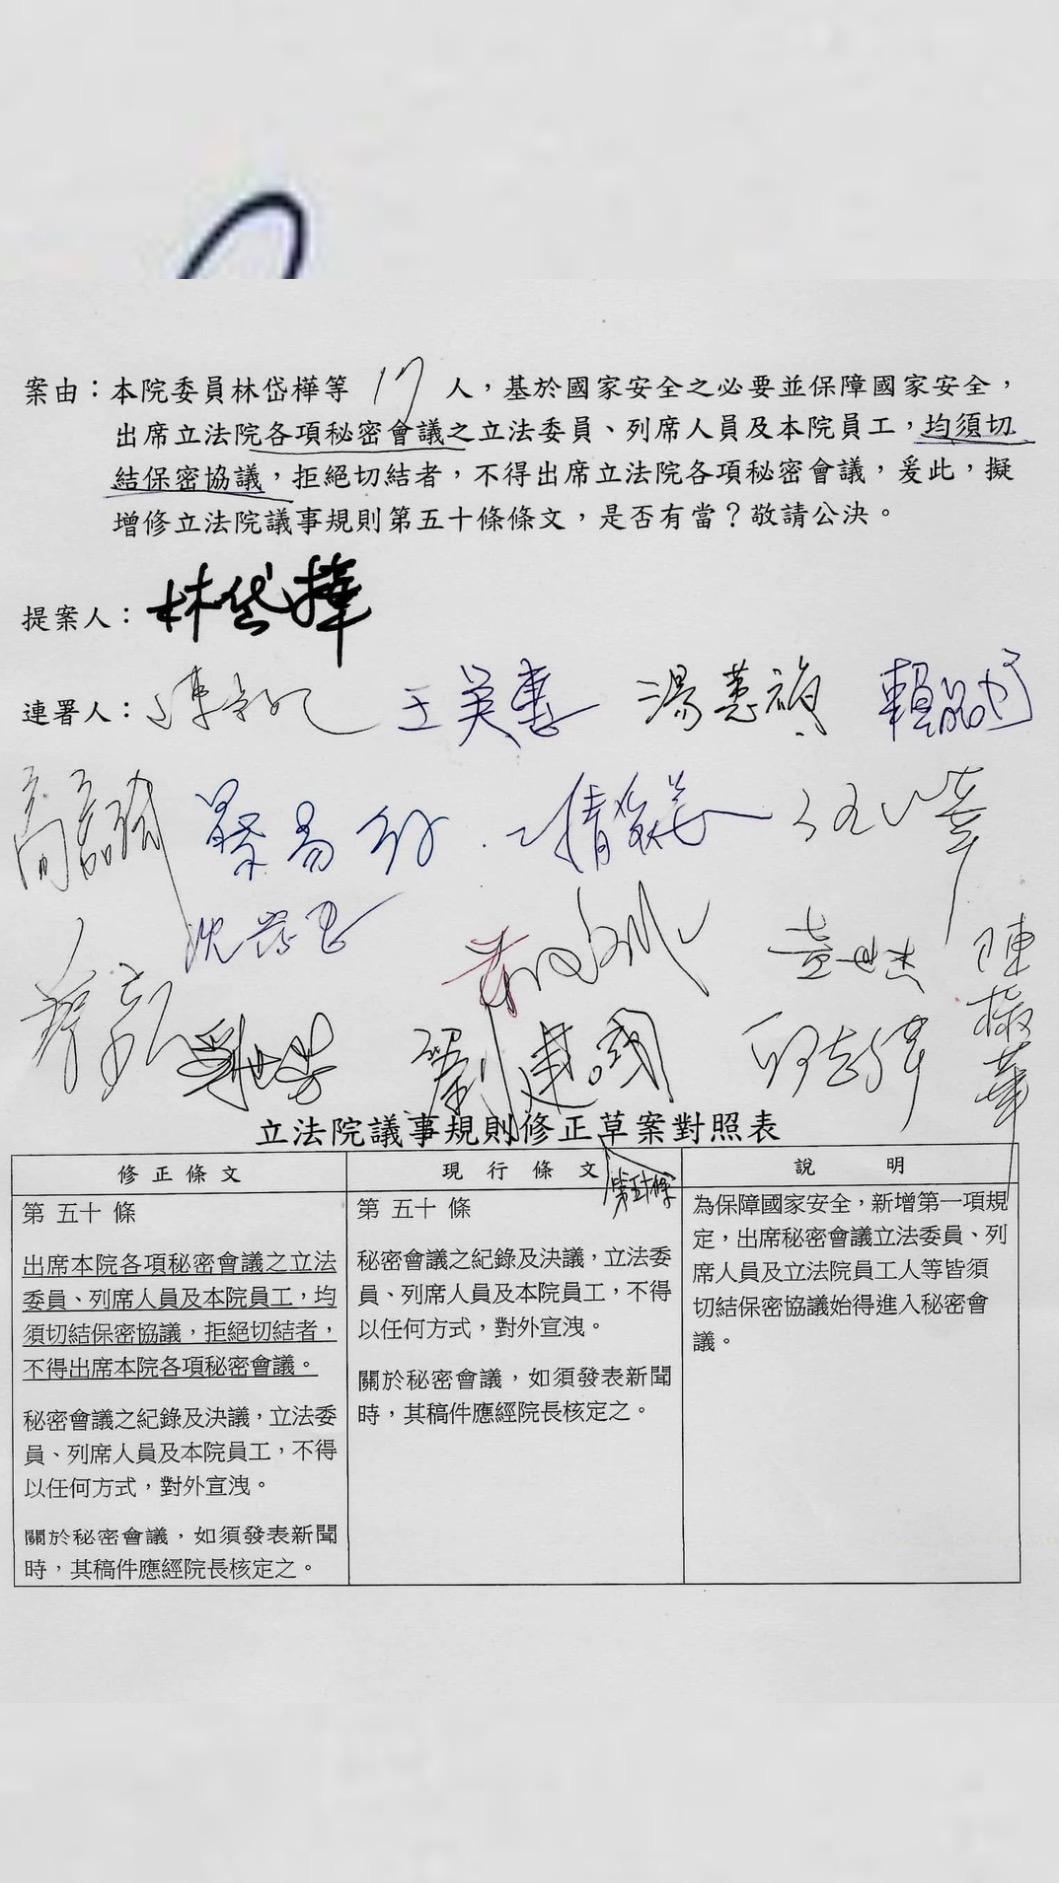 案由：本院委員林岱樺等 17 人，基於國家安全之必要並保障國家安全，
出席立法院各項秘密會議之立法委員、列席人員及本院員工，均須切
結保密協議，拒絕切結者，不得出席立法院各項秘密會議，爰此，擬
增修立法院議事規則第五十條條文，是否有當？敬請公決。
提案人：林岱樺
連署人：王美惠 湯蕙禎 賴品妤
高嘉瑜 蔡易餘
沈發惠 黃世杰 陳椒華
劉世芳 劉建國 邱志偉
立法院議事規則修正草案對照表
修正條文 現行條文 說明
第五十條
出席本院各項秘密會議之立法
委員、列席人員及本院員工，均
須切結保密協議，拒絕切結者，
不得出席本院各項秘密會議。
秘密會議之紀錄及決議，立法委
員、列席人員及本院員工，不得
以任何方式，對外宣洩。
關於秘密會議，如須發表新聞
時，其稿件應經院長核定之。
第五十條
秘密會議之紀錄及決議，立法委
員、列席人員及本院員工，不得
以任何方式，對外宣洩。
關於秘密會議，如須發表新聞
時，其稿件應經院長核定之。
為保障國家安全，新增第一項規
定，出席秘密會議立法委員、列
席人員及立法院員工人等皆須
切結保密協議始得進入秘密會
議。